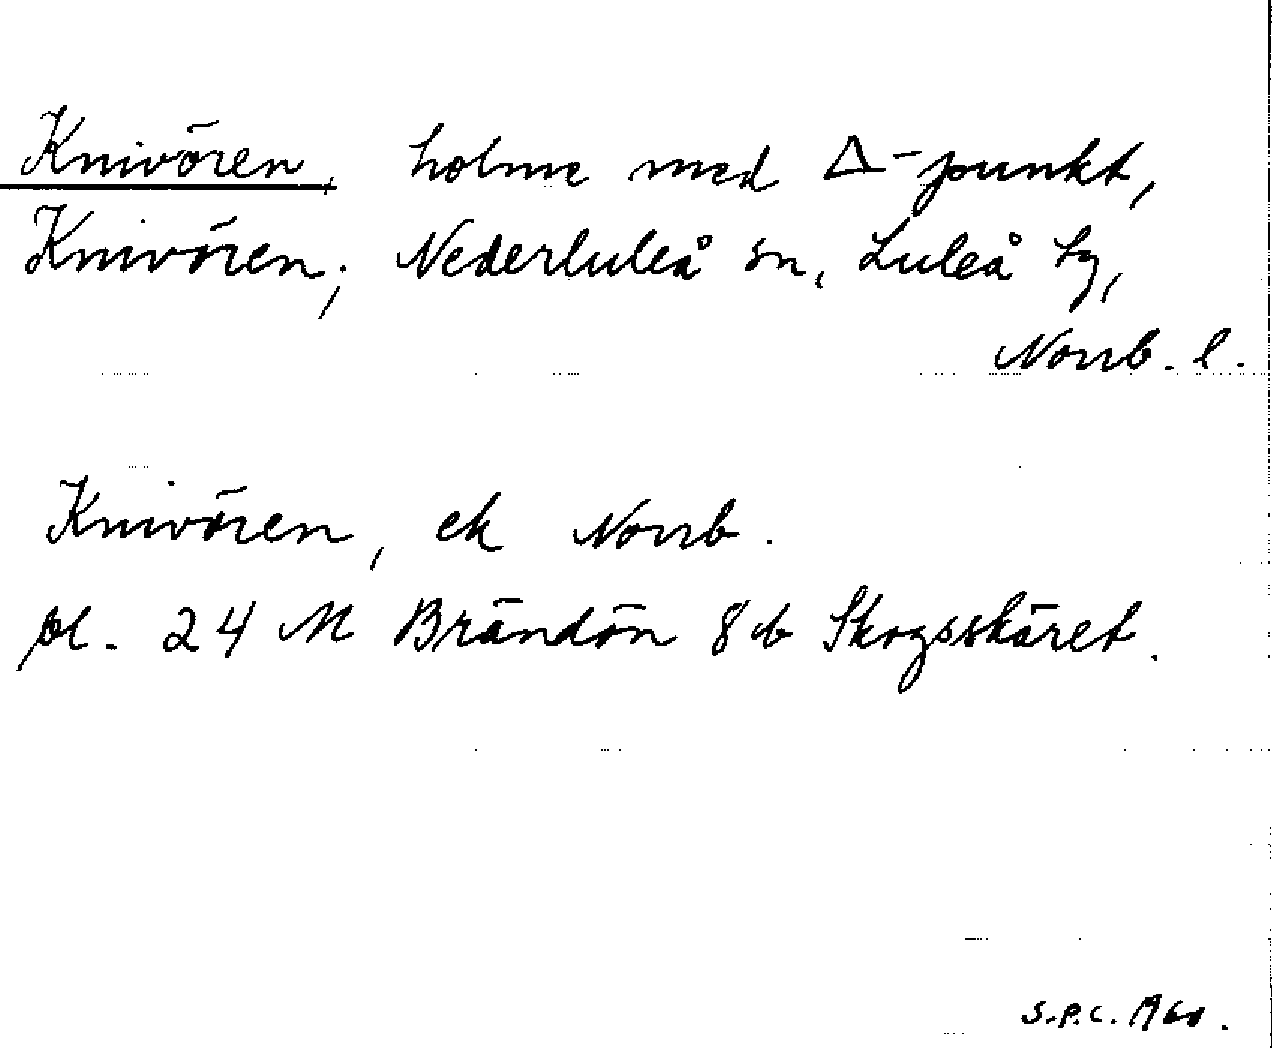 Knivören, holme med Δ-punkt,
Knivören; Nederluleå sn, Luleå tg,
Norrb. l.
Knivören, ek Norrb.
bl. 24 M Brändön 8 b Skogsskäret.
S.P.C. 1960.